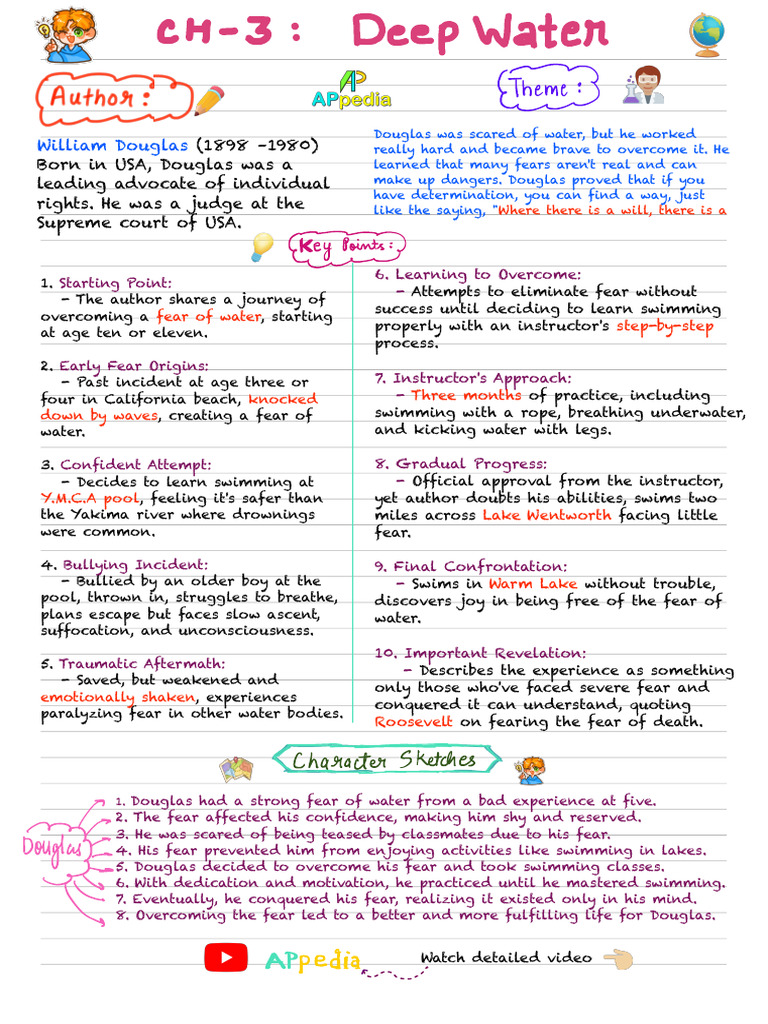 CH-3: Deep Water
Author:
APpedia
Theme:
William Douglas (1898 -1980)
Born in USA, Douglas was a
leading advocate of individual
rights. He was a judge at the
Supreme court of USA.
Douglas was scared of water, but he worked
really hard and became brave to overcome it. He
learned that many fears aren't real and can
make up dangers. Douglas proved that if you
have determination, you can find a way, just
like the saying, "Where there is a will, there is a
Key Points:
1. Starting Point:
- The author shares a journey of
overcoming a fear of water, starting
at age ten or eleven.
2. Early Fear Origins:
- Past incident at age three or
four in California beach, knocked
down by waves, creating a fear of
water.
3. Confident Attempt:
- Decides to learn swimming at
Y.M.C.A pool, feeling it's safer than
the Yakima river where drownings
were common.
4. Bullying Incident:
- Bullied by an older boy at the
pool, thrown in, struggles to breathe,
plans escape but faces slow ascent,
suffocation, and unconsciousness.
5. Traumatic Aftermath:
- Saved, but weakened and
emotionally shaken, experiences
paralyzing fear in other water bodies.
6. Learning to Overcome:
- Attempts to eliminate fear without
success until deciding to learn swimming
properly with an instructor's step-by-step
process.
7. Instructor's Approach:
- Three months of practice, including
swimming with a rope, breathing underwater,
and kicking water with legs.
8. Gradual Progress:
- Official approval from the instructor,
yet author doubts his abilities, swims two
miles across Lake Wentworth facing little
fear.
9. Final Confrontation:
- Swims in Warm Lake without trouble,
discovers joy in being free of the fear of
water.
10. Important Revelation:
- Describes the experience as something
only those who've faced severe fear and
conquered it can understand, quoting
Roosevelt on fearing the fear of death.
Character Sketches
Douglas
1. Douglas had a strong fear of water from a bad experience at five.
2. The fear affected his confidence, making him shy and reserved.
3. He was scared of being teased by classmates due to his fear.
4. His fear prevented him from enjoying activities like swimming in lakes.
5. Douglas decided to overcome his fear and took swimming classes.
6. With dedication and motivation, he practiced until he mastered swimming.
7. Eventually, he conquered his fear, realizing it existed only in his mind.
8. Overcoming the fear led to a better and more fulfilling life for Douglas.
APpedia
Watch detailed video